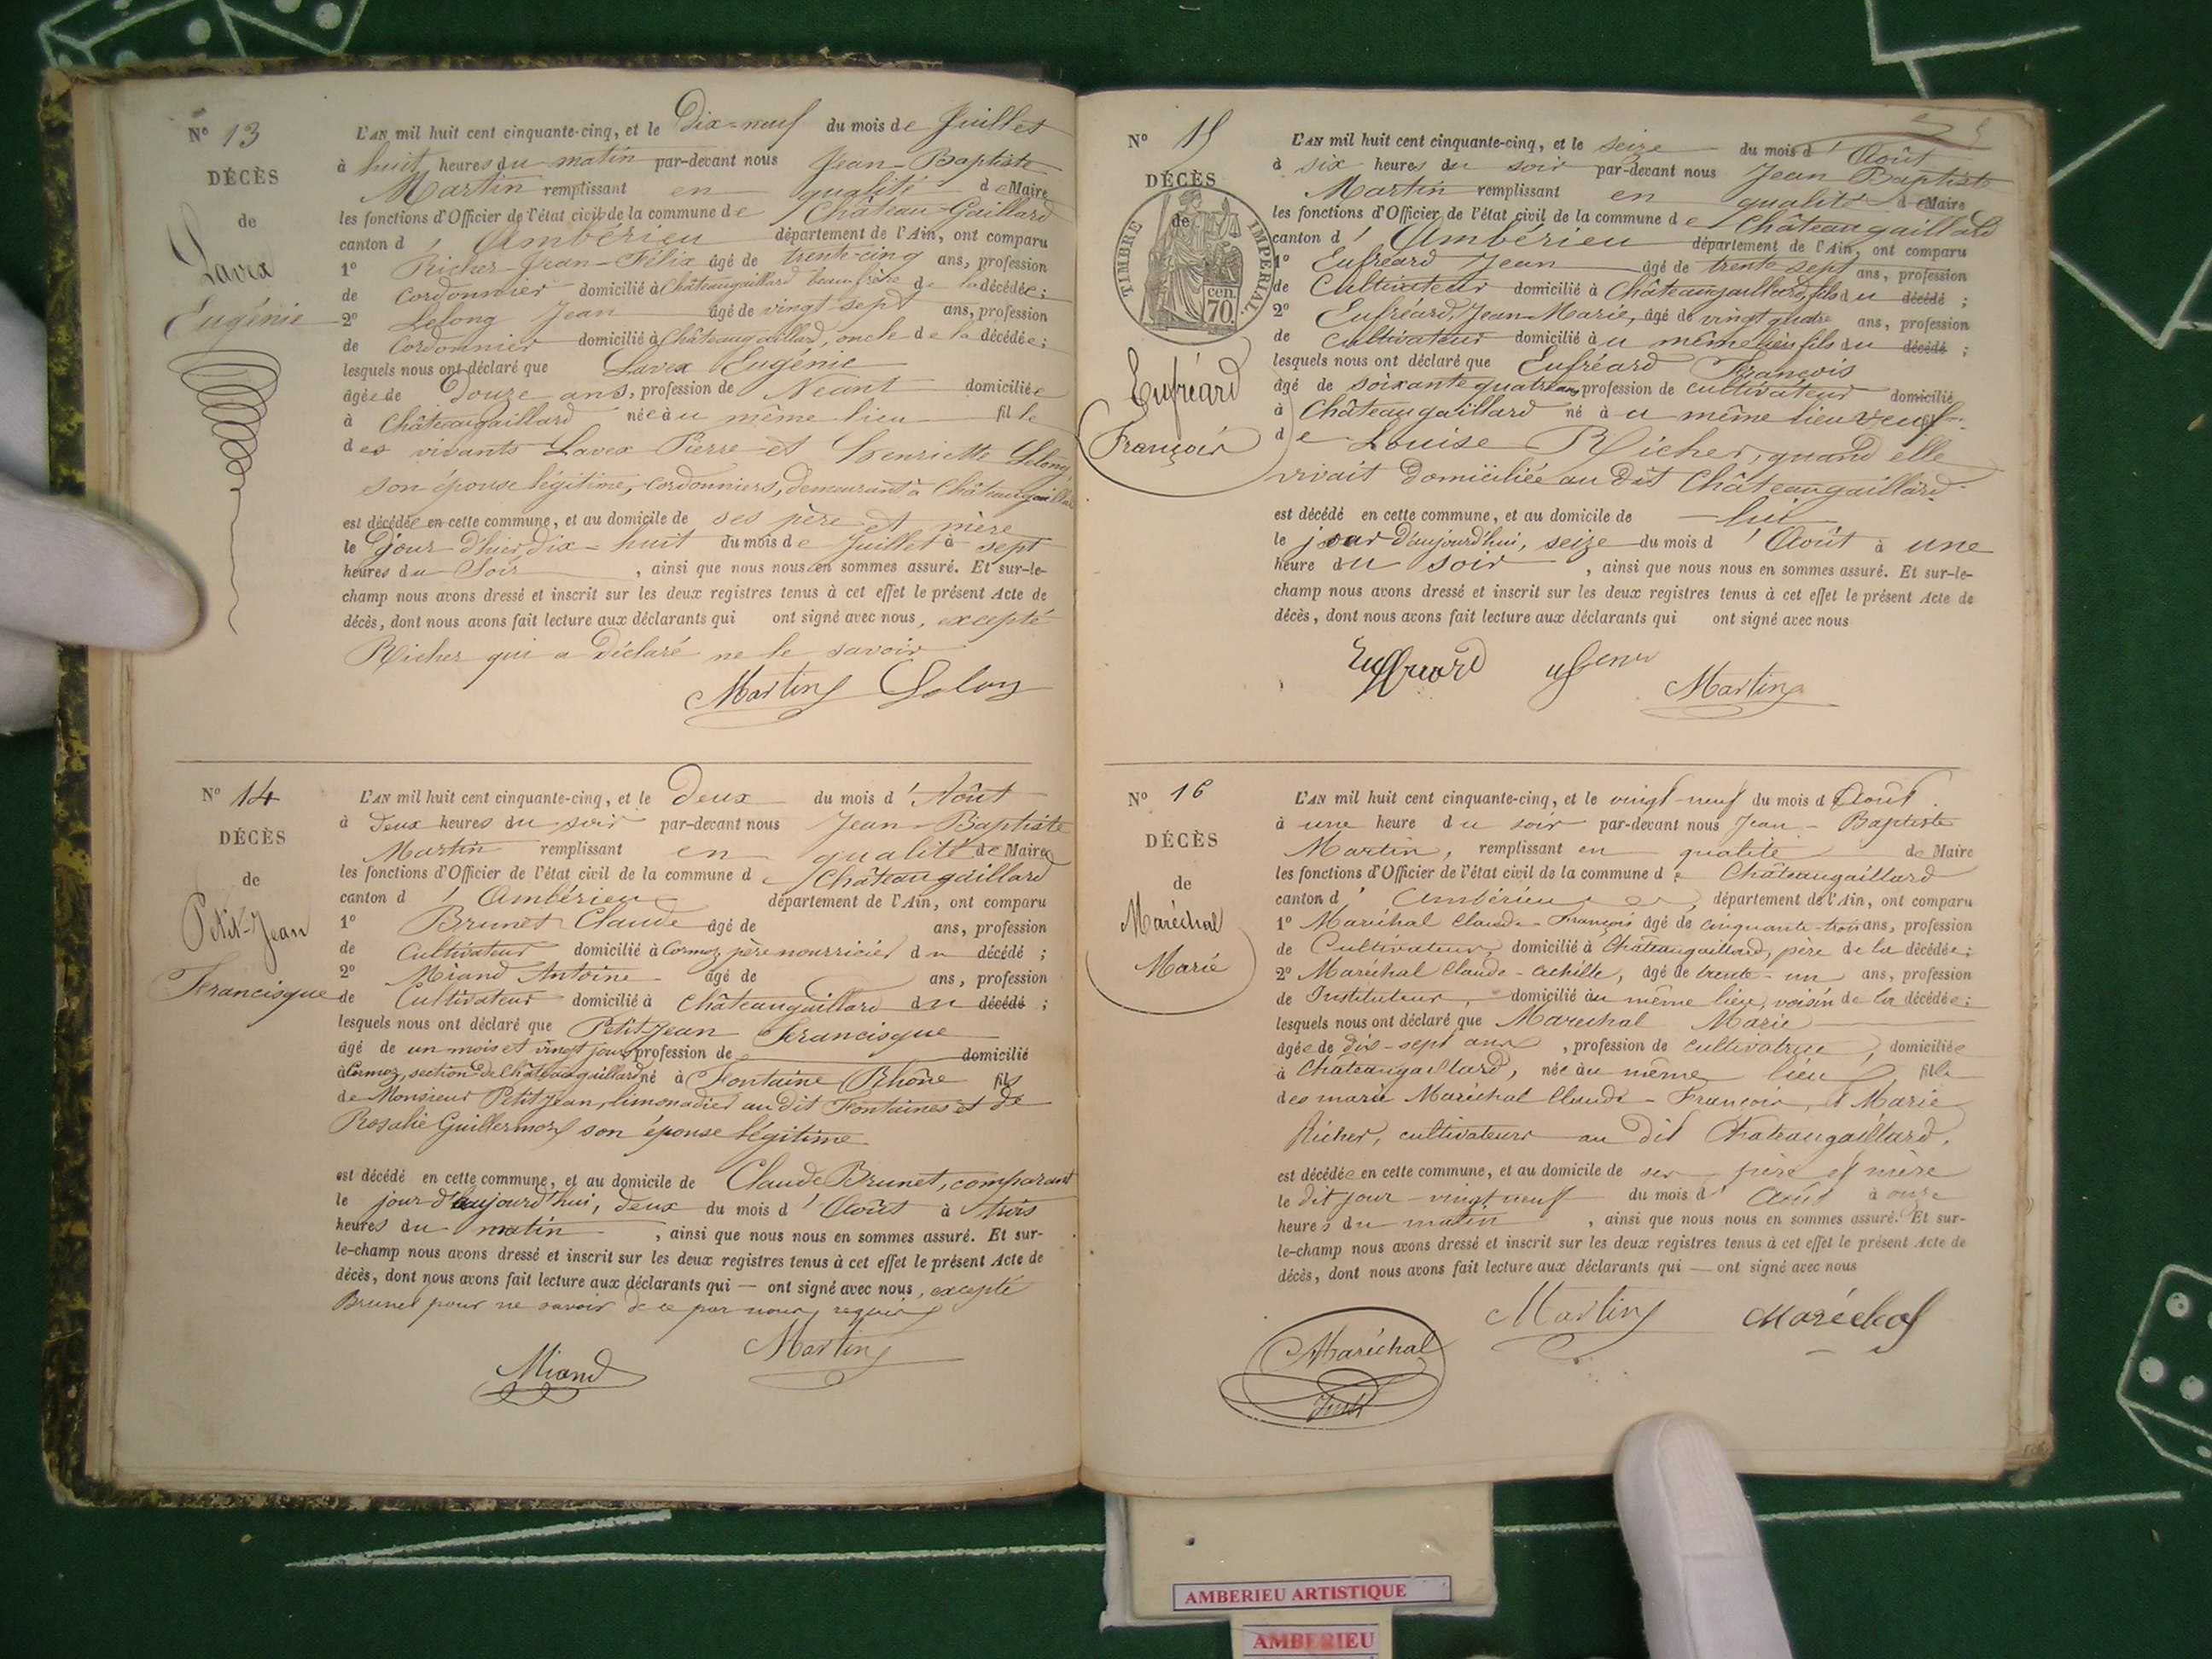 N° 13
DÉCÈS
de
Lavex
Eugénie
L'AN mil huit cent cinquante-cinq, et le Dix-neuf du mois de Juillet
à huit heures du matin par-devant nous Jean-Baptiste
Martin remplissant en qualité de Maire
les fonctions d'Officier de l'état civil de la commune de Château-Gaillard
canton d'Ambérieu département de l'Ain, ont comparu
1° Richer Jean-Félix âgé de trente-cinq ans, profession
de Cordonnier domicilié à Châteaugaillard beau frère de la décédée;
2° Lelong Jean âgé de vingt-sept ans, profession
de Cordonnier domicilié à Châteaugaillard, oncle de la décédée;
lesquels nous ont déclaré que Lavex Eugénie
âgée de Douze ans, profession de Néant domiciliée
à Châteaugaillard née au même lieu fille
des vivants Lavex Pierre et Henriette Lelong
son épouse légitime, cordonniers, demeurant à Châteaugaillard
est décédée en cette commune, et au domicile de ses père et mère
le jour d'hier, dix-huit du mois de Juillet à sept
heures du Soir, ainsi que nous nous en sommes assuré. Et sur-le-
champ nous avons dressé et inscrit sur les deux registres tenus à cet effet le présent Acte de
décès, dont nous avons fait lecture aux déclarants qui ont signé avec nous, excepté
Richer qui a déclaré ne le savoir
Martin Lelong
N° 14
DÉCÈS
de
Petit-Jean
Francisque
L'AN mil huit cent cinquante-cinq, et le Deux du mois d'Août
à Deux heures du soir par-devant nous Jean-Baptiste
Martin remplissant en qualité de Maire
les fonctions d'Officier de l'état civil de la commune de Châteaugaillard
canton d'Ambérieu département de l'Ain, ont comparu
1° Brunet Claude âgé de ans, profession
de Cultivateur domicilié à Cormoz, père nourricier du décédé;
2° Miand Antoine âgé de ans, profession
de Cultivateur domicilié à Châteaugaillard du décédé;
lesquels nous ont déclaré que Petit Jean Francisque
âgé de un mois et vingt jours, profession de domicilié
à Cormoz, section de Châteaugaillard né à Fontaine (Rhône fils
de Monsieur Petit Jean, limonadier au dit Fontaines et de
Rosalie Guillermoz son épouse légitime
est décédé en cette commune, et au domicile de Claude Brunet, comparant
le jour d'aujourd'hui, deux du mois d'Août à trois
heures du matin, ainsi que nous nous en sommes assuré. Et sur-
le-champ nous avons dressé et inscrit sur les deux registres tenus à cet effet le présent Acte de
décès, dont nous avons fait lecture aux déclarants qui — ont signé avec nous, excepté
Brunet pour ne savoir de ce par nous requis
Miand Martin
N° 15
DÉCÈS
de
TIMBRE IMPERIAL
70 cen.
Eufréard
François
L'AN mil huit cent cinquante-cinq, et le seize du mois d'Août
à six heures du soir par-devant nous Jean Baptiste
Martin remplissant en qualité de Maire
les fonctions d'Officier de l'état civil de la commune de Châteaugaillard
canton d'Ambérieu département de l'Ain, ont comparu
1° Eufréard Jean âgé de trente sept ans, profession
de Cultivateur domicilié à Châteaugaillard, fils du décédé;
2° Eufréard, Jean-Marie, âgé de vingt quatre ans, profession
de cultivateur domicilié au même lieu fils du décédé;
lesquels nous ont déclaré que Eufréard François
âgé de soixante quatre ans profession de cultivateur domicilié
à Châteaugaillard né à u même lieu veuf
de Louise Richer, quand elle
vivait domiciliée au dit Châteaugaillard
est décédé en cette commune, et au domicile de lui
le jour d'aujourd'hui, seize du mois d'Août à une
heure du soir, ainsi que nous nous en sommes assuré. Et sur-le-
champ nous avons dressé et inscrit sur les deux registres tenus à cet effet le présent Acte de
décès, dont nous avons fait lecture aux déclarants qui ont signé avec nous
Martin
N° 16
DÉCÈS
de
Maréchal
Marie
L'AN mil huit cent cinquante-cinq, et le vingt-neuf du mois d'Août.
à une heure du soir par-devant nous Jean-Baptiste
Martin, remplissant en qualité de Maire
les fonctions d'Officier de l'état civil de la commune de Châteaugaillard
canton d'Ambérieu, département de l'Ain, ont comparu
1° Maréchal Claude-François âgé de cinquante-trois ans, profession
de Cultivateur, domicilié à Châteaugaillard, père de la décédée;
2° Maréchal Claude-Achille, âgé de trente-un ans, profession
de Instituteur, domicilié au même lieu, voisin de la décédée;
lesquels nous ont déclaré que Marechal Marie
âgée de dix-sept ans, profession de cultivatrice, domiciliée
à Châteaugaillard, née au même lieu, fille
des marié Maréchal Claude-François, et Marie
Richer, cultivateurs au dit Chateaugaillard.
est décédée en cette commune, et au domicile de ses père et mère
le dit jour vingt neuf du mois d'Août à onze
heures du matin, ainsi que nous nous en sommes assuré. Et sur-
le-champ nous avons dressé et inscrit sur les deux registres tenus à cet effet le présent Acte de
décès, dont nous avons fait lecture aux déclarants qui — ont signé avec nous
Maréchal Martin Maréchal
AMBERIEU ARTISTIQUE
AMBERIEU